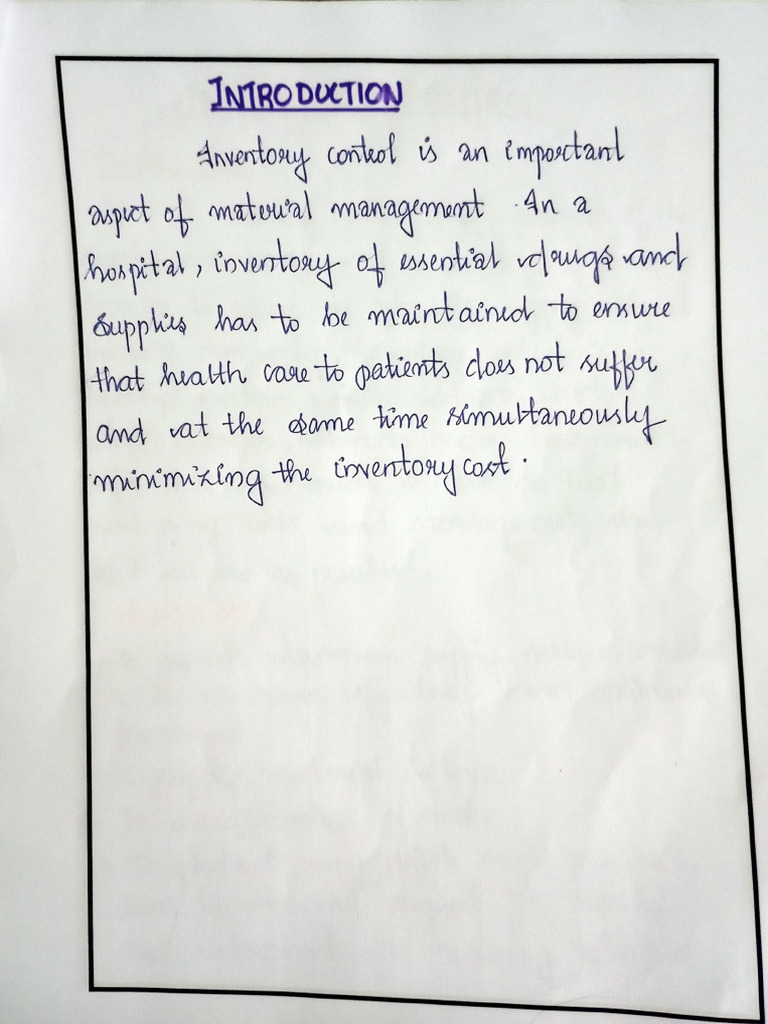 INTRODUCTION
Inventory control is an important
aspect of material management. In a
hospital, inventory of essential drugs and
supplies has to be maintained to ensure
that health care to patients does not suffer
and at the same time simultaneously
minimizing the inventory cost.